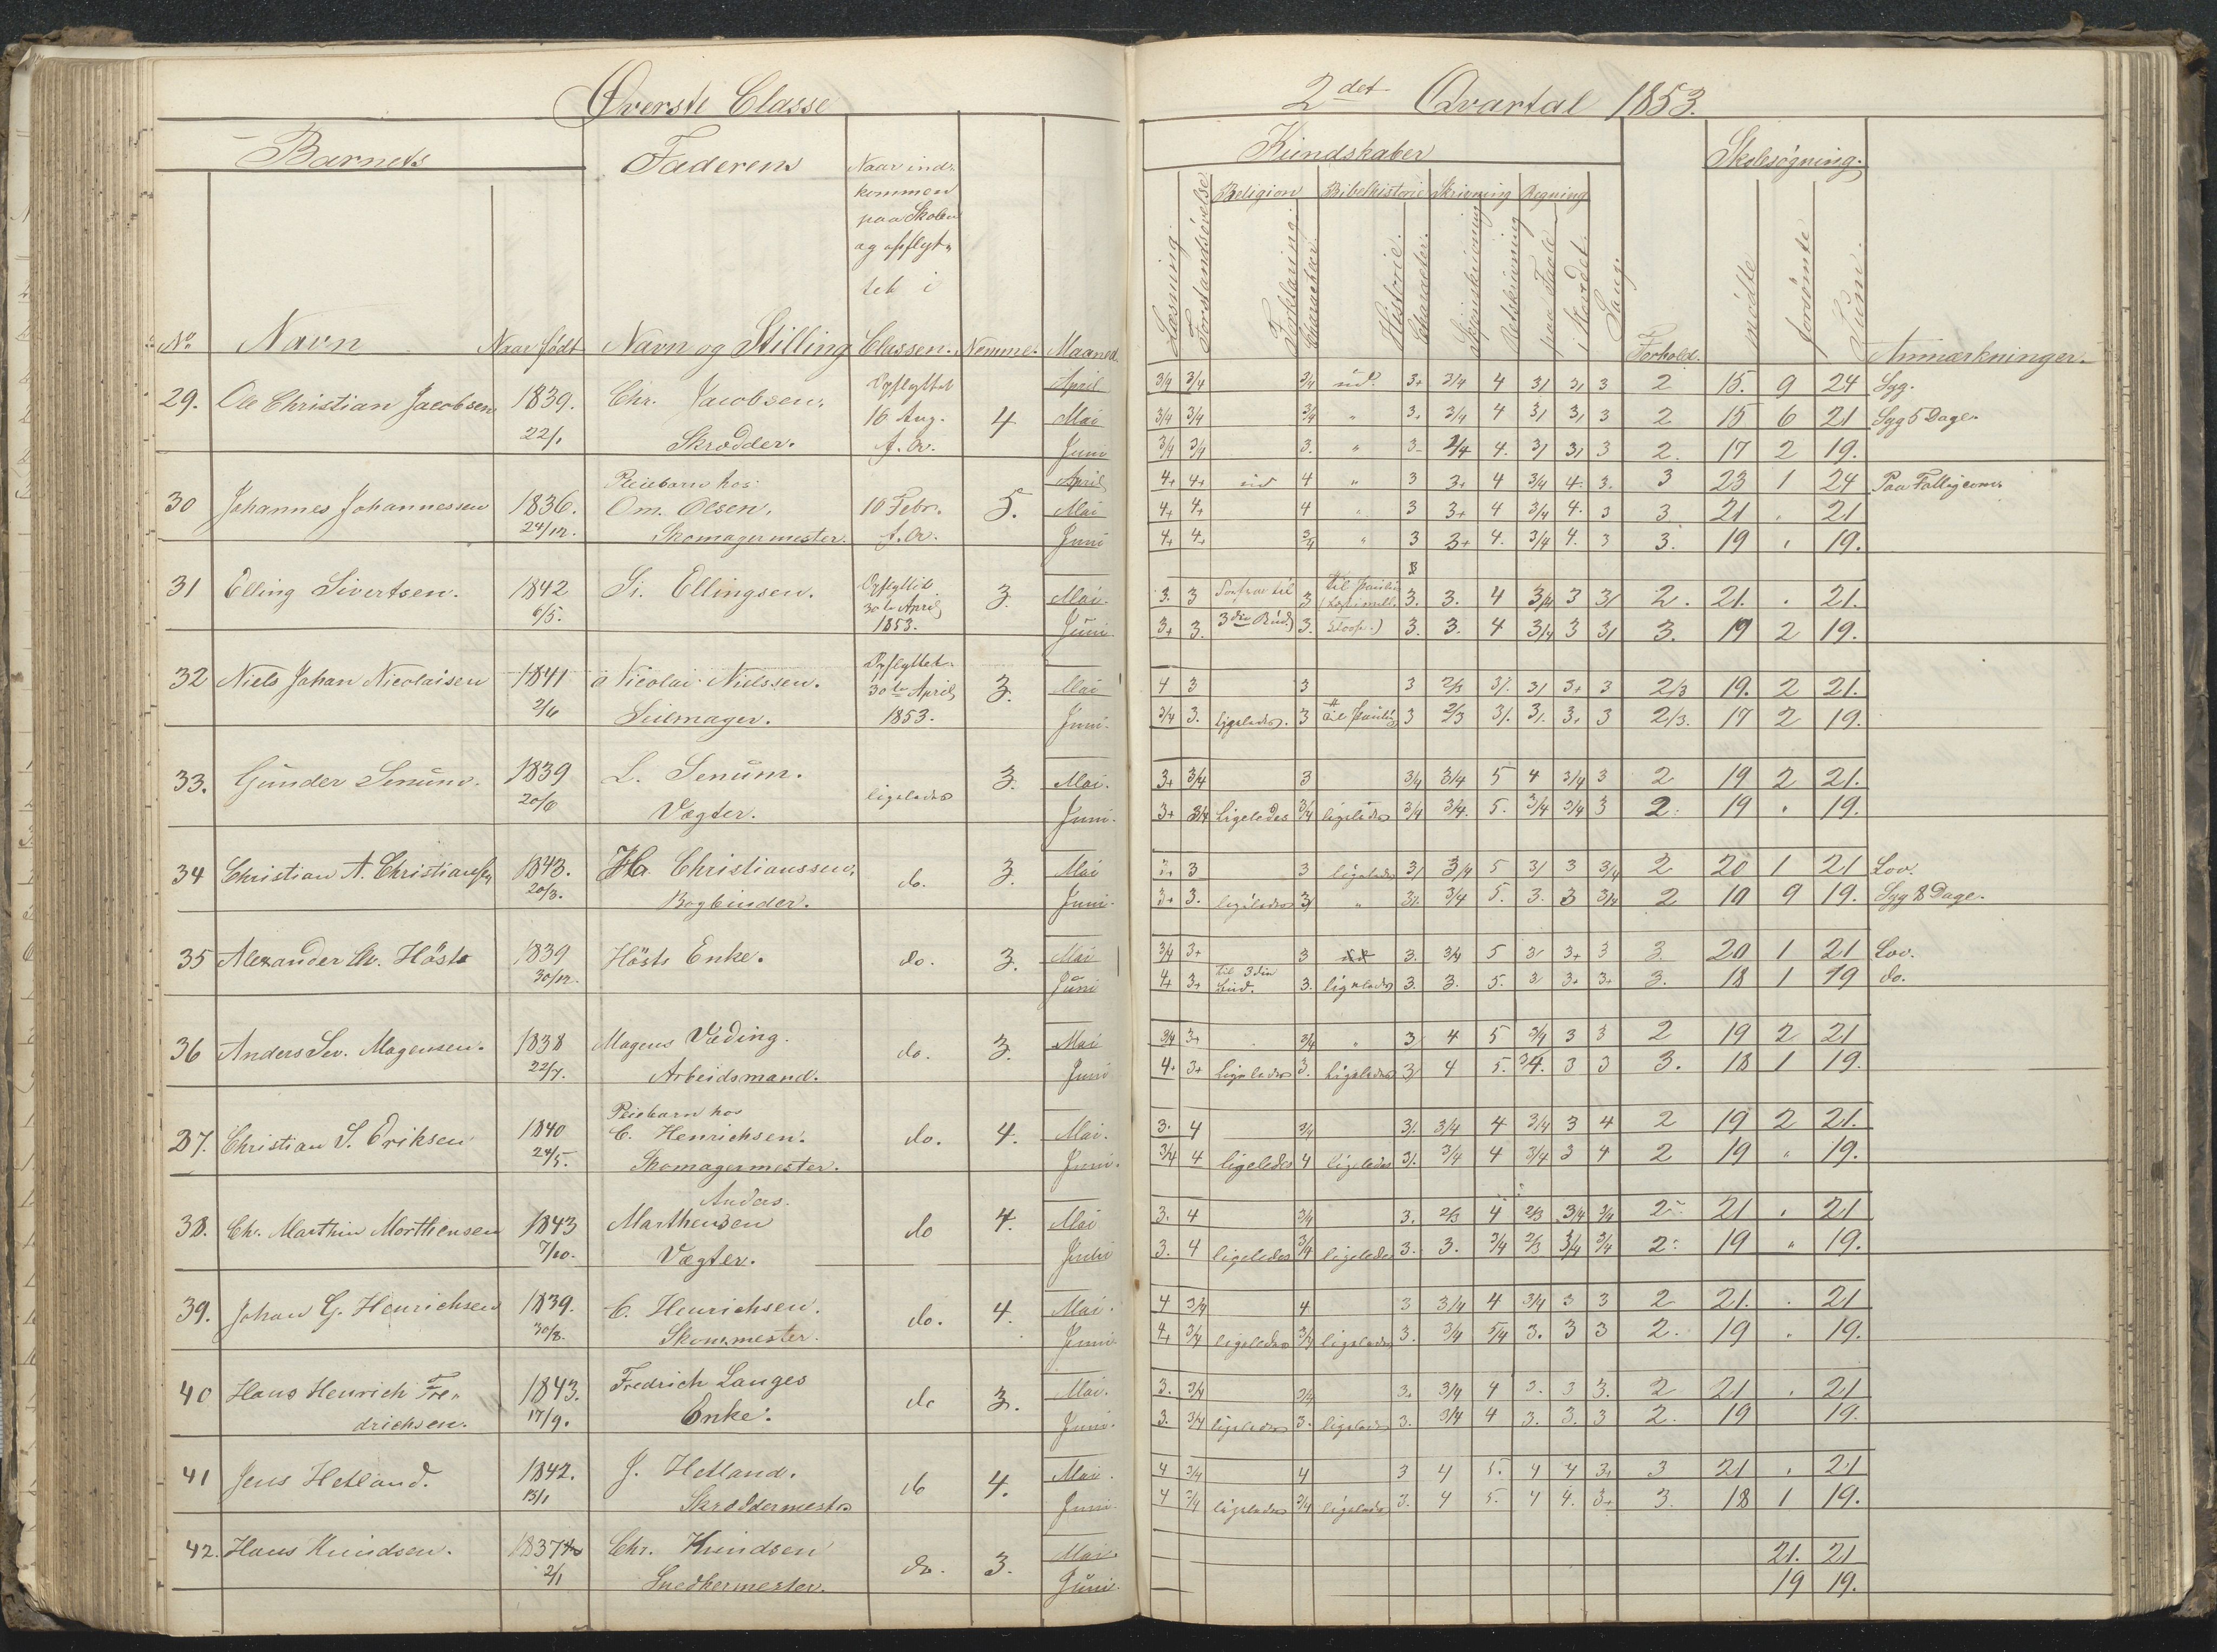 Øverste Classe
2det Qvartal 1853.
Barnets
Faderens
Naar ind-
kommen
paa Skolen
og opflyt-
tet i
Classen.
No Navn Naar født Navn og Stilling Nemme. Maaned.
Kundskaber
Skolesøgning.
Religion Bibelhistorie Skrivning Regning
Læsning. Forstandsøvelse Forklaring. Characteer. Historie. Character. Skjønskrivning Retskrivning paa Tavle i Hovdet. Sang. Forhold. mødte forsømte Sum. Anmærkninger.
29. Ole Christian Jacobsen 1839. Chr. Jacobsen. Opflyttet April 3/4 3/4 3/4 ud. 3+ 3/4 4 3/ 3/ 3 2 15. 9 24 Syg.
22/1 Skrædder. 16 Aug. 4 Mai 3/4 3/4 3/4 " 3+ 3/4 4 3/ 3/ 3 2 15 6 21 Syg 5 Dage.
f. A. Juni 3/4 3/4 3. " 3- 3/4 4. 3/ 3/ 3 2. 17 2 19.
30 Johannes Johannessen 1836. Pleiebarn hos: April 4+ 4+ ud 4 " 3 3+ 4 3/4 4. 3. 3 23 1 24
24/12. Om. Olsen. 10 Febr. 5. Mai 4+ 4+ 4 " 3 3+ 4 3/4 4. 3 3. 21 . 21
Skomagermester. f. A. Juni 4+ 4+ 3/4 " 3 3+ 4. 3/4 4. 3 3. 19 . 19.
31 Elling Sivertsen. 1842 Si. Ellingsen. Opflyttet 3. Mai. 3. 3 Forfra til 3 til Pauli 3. 3. 4 3/4 3 3/ 2. 21. . 21.
6/5. 30te April 1853. Juni 3+ 3. 3die Bud 3. 3. 3. 4 3/4 3 3/ 3. 19 2 19.
32 Niels Johan Nicolaisen 1841 Nicolai Nielssen. Opflyttet 3. Mai 4 3 3 3 2/3 3/. 3/ 3+ 3 2/3 19. 2 21.
2/6 Seilmager. 30te April 1853. Juni. 3/4 3. ligeledes. 3 til Pauli 3 2/3 3/. 3/. 3+ 3 2/3. 17 2 19.
33. Gunder Senum. 1839 L. Senum. 3. Mai. 3+ 3/4 3 3/4 3/4 5 4 3/4 3 2 19 2 21.
Vægter. ligeledes Juni. 3+ 3/4 Ligeledes 3/4 ligeledes 3/4 3/4. 5. 3/4 3/4 3 2. 19 . 19.
34 Christian A. Christiansen 1843. Christianssen. do. 3. Mai 3+ 3 3 ligeledes 3/ 3/4 5 3/ 3 3/4 2 20 1 21 Lov.
20/3. Bogbinder. Juni. 3+ 3. ligeledes 3/ " 3/. 3/4 5. 3. 3 3/4 2 10 9 19. Syg 8 Dage.
35 Alexander Chr. Höst 1839 Hösts Enke. do. 3. Mai 3/4 3+ 3 3. 3/4 5 3 3+ 3 3 20 1 21 Lov.
30/12. Juni 4 3+ til 3die Bud. 3. ligeledes 3. 3. 5. 3 3+ 3+ 3. 18 1 19 do.
36 Anders Sev. Mogensen. 1838 Mogens Væding. do. 3. Mai 3/4 3+ 3/4 " 3/ 4 5 3/4 3 3 2 19 2 21
22/7. Arbeidsmand. Juni 4+ 3+ Ligeledes 3. Ligeledes 3/ 4 5. 3/4. 3 3 3. 18 1 19.
37. Christian S. Eriksen 1840 Pleiebarn hos
24/5. C. Henrichsen. do. 4. Mai. 3. 4 3/4 3/. 3/4 4 3/4 3 4 2 19 2 21.
Skomagermester. Juni. 3/4 4 ligeledes 4 ligeledes 3/. 3/4 4 3/4 3 4 2 19 " 19.
38. Chr. Marthin Morthensen 1843 Anders.
Marthensen do 4. Mai 3. 4 3/4 3. 2/3 4 2/3 3/4 3/4 2 21 . 21
7/10. Vægter. Juni 3. 4 ligeledes 3/4 ligeledes 3. 3. 3/4 2/3 3/4 3/4 2 19 " 19.
39. Johan G. Henrichsen 1839. C. Henrichsen. do. 4. Mai. 4 3/4 4 3 3/4 4 3/4 3 3 2 21. . 21
30/8. Skom.mester. Juni 4+ 3/4 ligeledes 3/4 ligeledes 3. 3/4 5/4 3. 3 3 2. 19 . 19.
40 Hans Henrich Fre- 1843. Fredrich Langes do 3. Mai. 3. 3/4 3/4 3+ 3/4 4 3. 3 3. 2 21 . 21
drichsen. 17/9. Enke. Juni. 3. 3/4 ligeledes 3. ligeledes 3. 3/4 4 3. 3. 3 2. 19 19.
41 Jens Hetland. 1842. J. Hetland. do 4. Mai. 4 3/4 4 3 4 5. 4 4 3+ 3 21 . 21
13/1 Skræddermester Juni. 4 3/4 ligeledes 3/4 ligeledes 3. 4 5. 4 4. 3+ 3. 18 1 19.
42. Hans Knudsen. 1837 Chr. Knudsen do. 3. Mai. 21. 21
2/1 Snedkermester. Juni. 19 19.